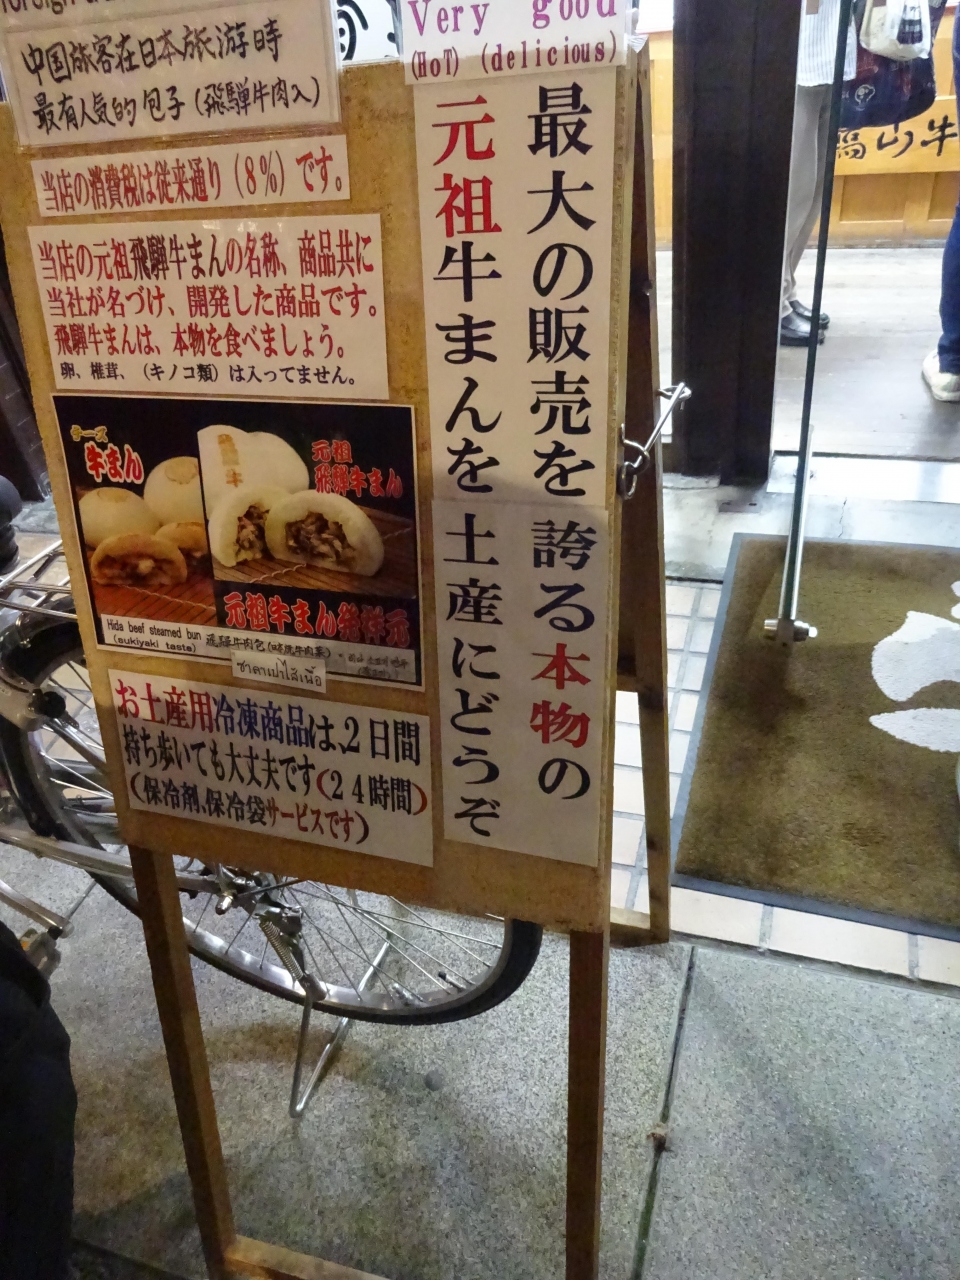 中国旅客在日本旅游時
最有人気的包子(飛騨牛肉入)
当店の消費税は従来通り(8%)です。
当店の元祖飛騨牛まんの名称、商品共に
当社が名づけ、開発した商品です。
飛騨牛まんは、本物を食べましょう。
卵、椎茸、(キノコ類)は入ってません。
チーズ
牛まん
元祖
飛騨牛まん
元祖牛まん発祥元
Hida beef steamed bun
(sukiyaki taste)
ซาลาเปาไส้เนื้อ
お土産用冷凍商品は、2日間
持ち歩いても大丈夫です(24時間)
(保冷剤、保冷袋サービスです)
Very good
(HoT) (delicious)
最大の販売を誇る本物の
元祖牛まんを土産にどうぞ
山牛